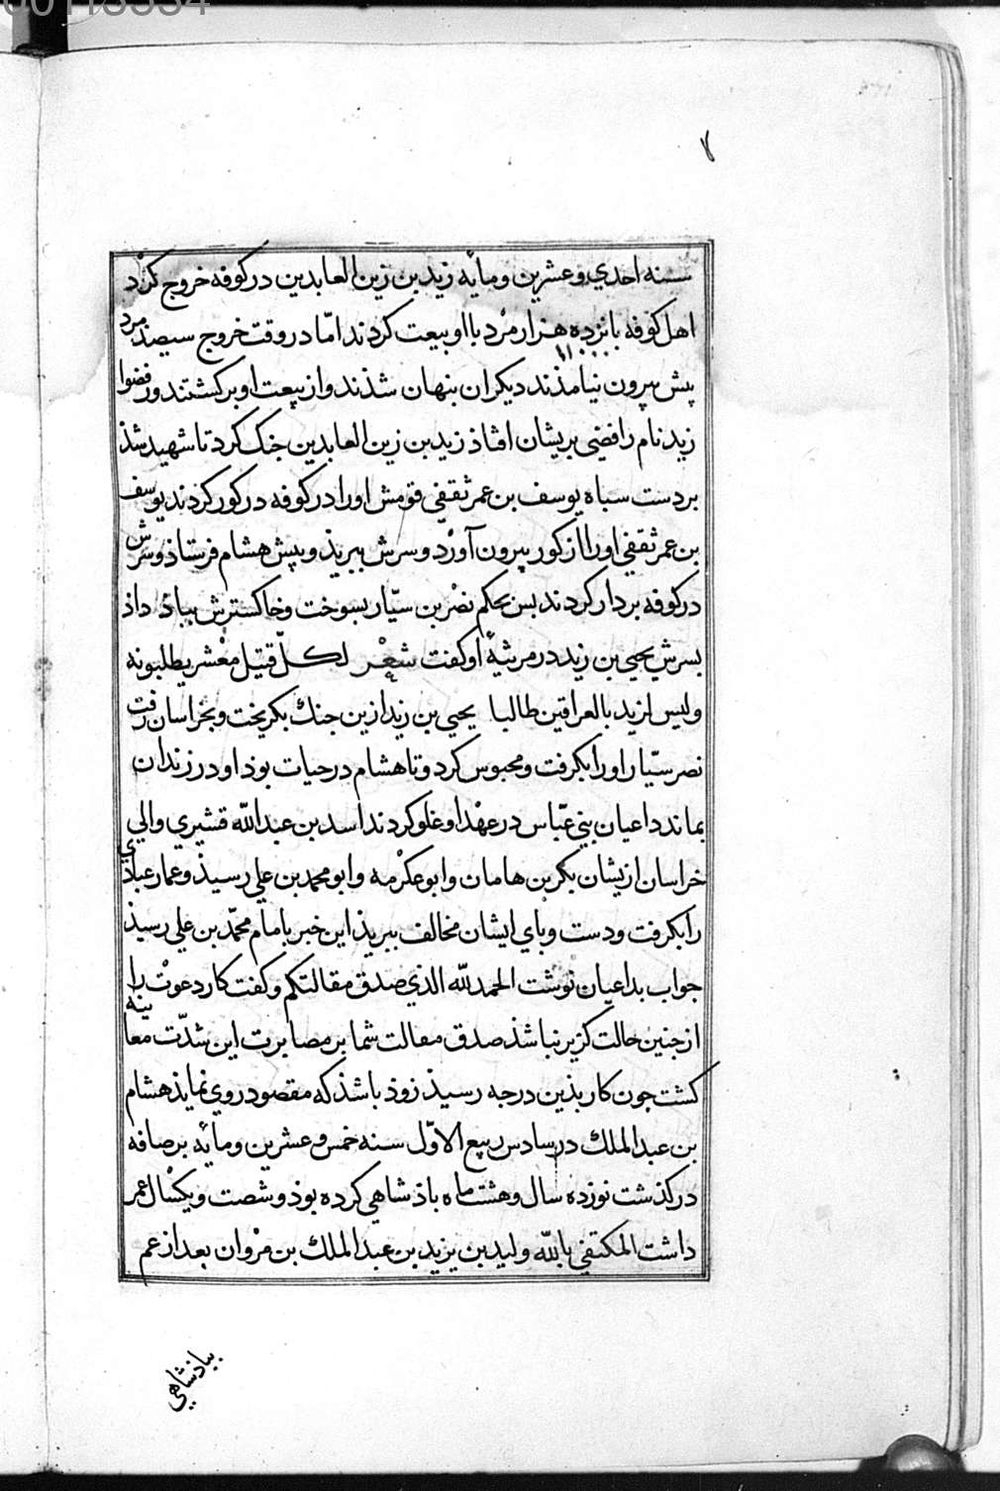 سنه احدي وعشرين ومایه زیدبن زین العابدین درکوفه خروج کرد
اهل کوفه بانزده هزار مرد بااو بیعت کردند امّا دروقت خروج سیصد مرد
پیش بیرون نیامذند دیکران بنهان شذند واز بیعت او برکشتند ورفضوا
زید نام رافضی بریشان افتاذ زیدبن زین العابدین جنک کرد تا شهید شذ
بردست سباه یوسف بن عمر ثقفی قومش اورا درکوفه درکور کردند یوسف
بن عمر ثقفي اورا از کور بیرون آورد وسرش ببریذ وپیش هشام فرستاذ وسرش
درکوفه بردار کردند بس بحکم نصر بن سیّار بسوخت وخاکسترش بباذ داذ
بسرش یحیي بن زید در مرثیهٔ او کفت شعر لکلّ قتیل معشر یطلبونه
ولیس لزید بالعراقین طالبا یحیي بن زید ازین جنك بکریخت وبخراسان رفت
نصر سیّار اورا بکرفت ومحبوس کرد وتا هشام درحیات بوذ او درزندان
بماند داعیان بني عبّاس درعهد او غلو کردند اسد بن عبد الله قشیري والي
خراسان ازیشان بکر بن هامان وابو عکرمه وابو محمد بن علي رسیذ وعمار عبادي
را بکرفت ودست وباي ایشان مخالف ببریذ این خبر بامام محمّد بن علي رسیذ
جواب بداعیان نوشت الحمد لله الذي صدق مقالتکم وکفت کار دعوت را
از جنین حالت کزیر نباشذ صدق مقالت شما بر مصابرت این شدّت معاینه
کشت جون کار بذین درجه رسیذ زوذ باشذ که مقصود روي نمایذ هشام
بن عبد الملك در سادس ربیع الاوّل سنه خمس وعشرین ومایه برصافه
درکذشت نوزده سال وهشت ماه باذشاهي کرده بوذ وشصت ویکسال عمر
داشت المکتفي بالله ولید بن یزید بن عبد الملك بن مروان بعد از عم
بباذشاهي